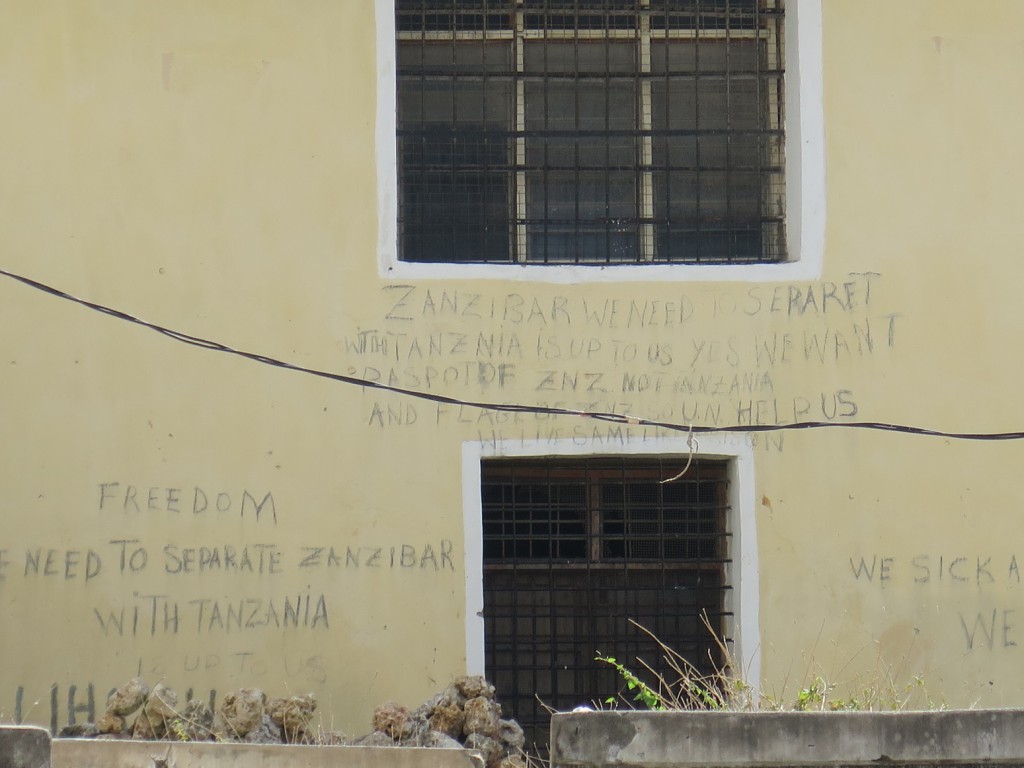 ZANZIBAR WE NEED TO SEPARET
WITH TANZNIA IS UP TO US YES WE WANT
PASPOT OF ZNZ NOT TANZANIA
AND FLAG OF ZNZ SO UN HELP US
WE LIVE SAME
FREEDOM
E NEED TO SEPARATE ZANZIBAR
WITH TANZANIA
IS UP TO US
WE SICK A
WE